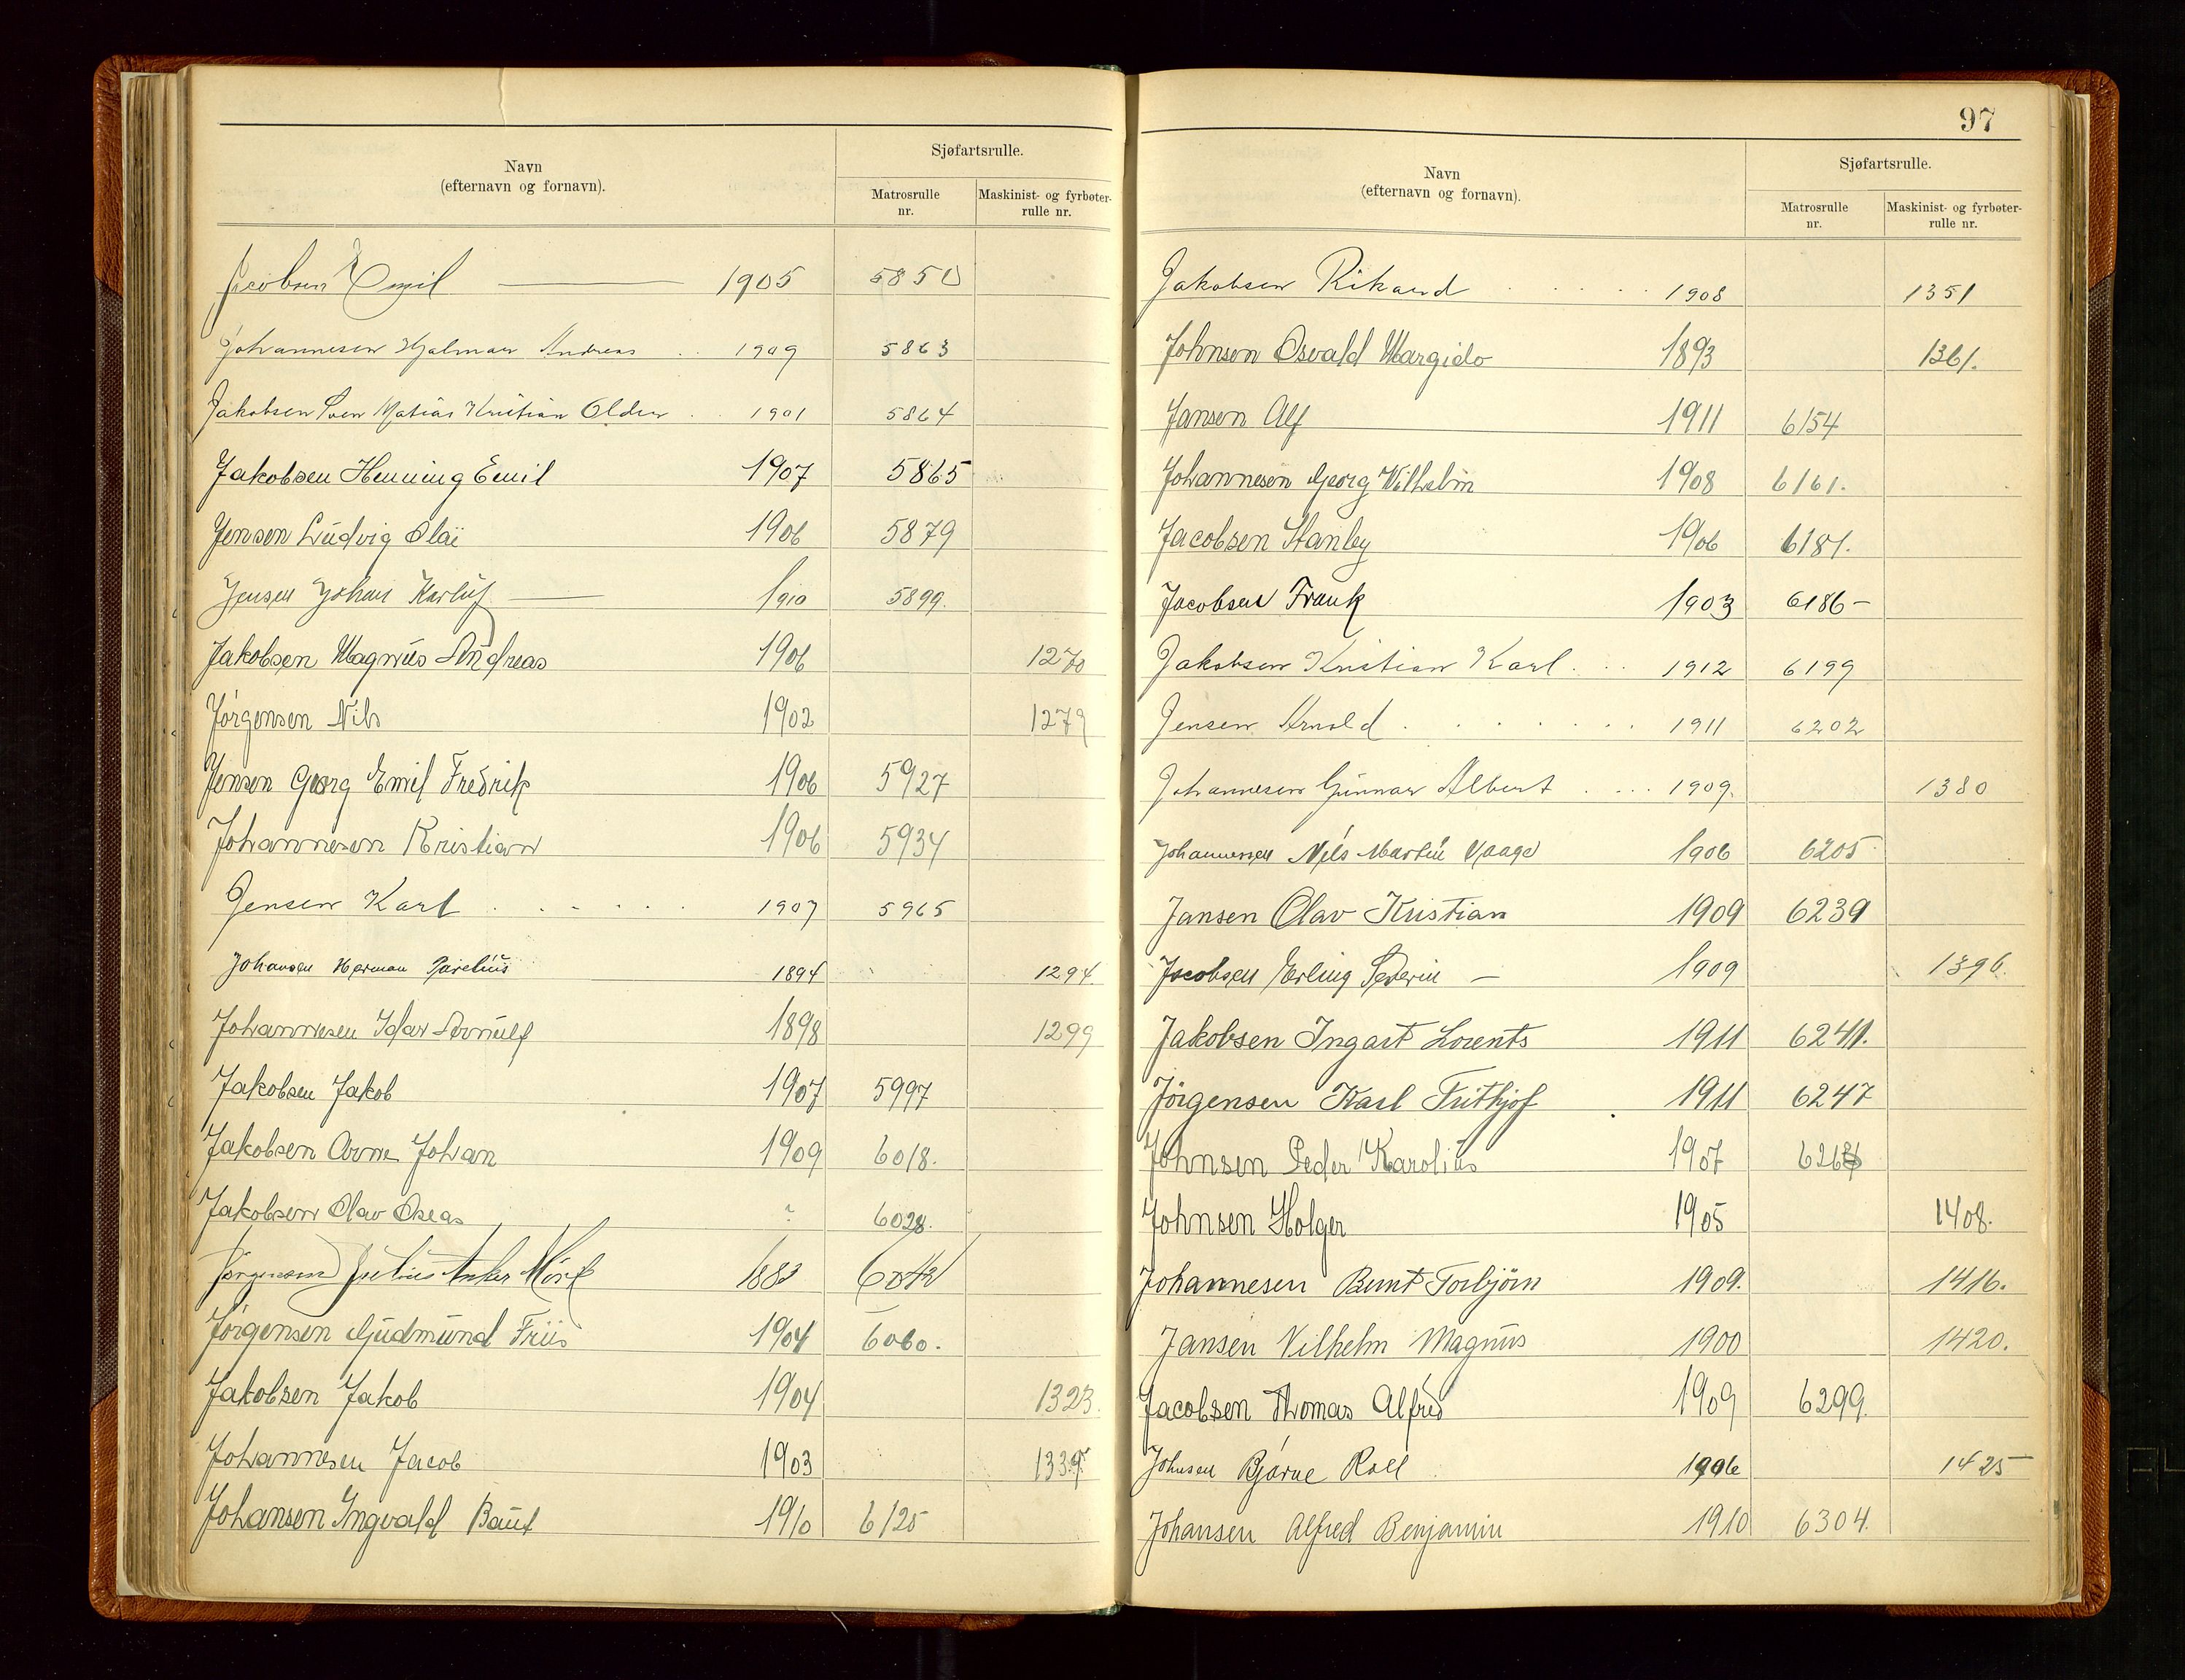 Navn
(efternavn og fornavn).
Sjøfartsrulle.
Matrosrulle
nr.
Maskinist- og fyrbøter-
rulle nr.
Jacobsen Emil 1905 5850
Johannesen Hjalmar Andreas . . 1909 5863
Jakobsen Sven Matias Kristian Olden . . 1901 5864
Jakobsen Henning Emil 1907 5865
Jensen Ludvig Olai 1906 5879
Jensen Johan Karluf 1910 5899.
Jakobsen Magnus Andreas 1906 1270
Jørgensen Nils 1902 1279
Jensen Georg Emil Fredrik 1906 5927
Johannesen Kristian 1906 5934
Jensen Karl . . . . . 1907 5965
Johansen Herman Parelius 1894 1294.
Johannesen Idar Arnulf 1898 1299
Jakobsen Jakob 1907 5997
Jakobsen Arne Johan 1909 6018.
Jakobsen Olav Oseas ? 6028.
Jørgensen Julius Anker Mörk 1883 6042
Jørgensen Gudmund Friis 1904 6060.
Jakobsen Jakob 1904 1323.
Johannesen Jacob 1903 1339.
Johansen Ingvald 1910 6125
97
Navn
(efternavn og fornavn).
Sjøfartsrulle.
Matrosrulle
nr.
Maskinist- og fyrbøter-
rulle nr.
Jakobsen Rikard . . . . . 1908 1351
Johnsen Osvald Margido 1893 1361.
Jansen Alf 1911 6154
Johannesen Georg Wilhelm 1908 6161.
Jacobsen Stanley 1906 6181.
Jacobsen Frank 1903 6186 -
Jakobsen Kristian Karl . . . 1912 6199
Jensen Arnold . . . . . . 1911 6202
Johannesen Gunnar Albert . . . . 1909. 1380
Johannessen Nils Martin Vaage 1906 6205
Jansen Olav Kristian 1909 6239
Jacobsen Erling Severin - 1909 1396.
Jakobsen Ingart Lorents 1911 6241.
Jörgensen Karl Frithjof 1911 6247
Johnsen Peder Karolius 1907
Johnsen Holger 1905 1408.
Johannesen Bernt Torbjörn 1909. 1416.
Jansen Vilhelm Magnus 1900 1420.
Jacobsen Thomas Alfred 1909 6299.
Johnsen Bjarne Roll 1906 1425
Johansen Alfred Benjamin 1910 6304.